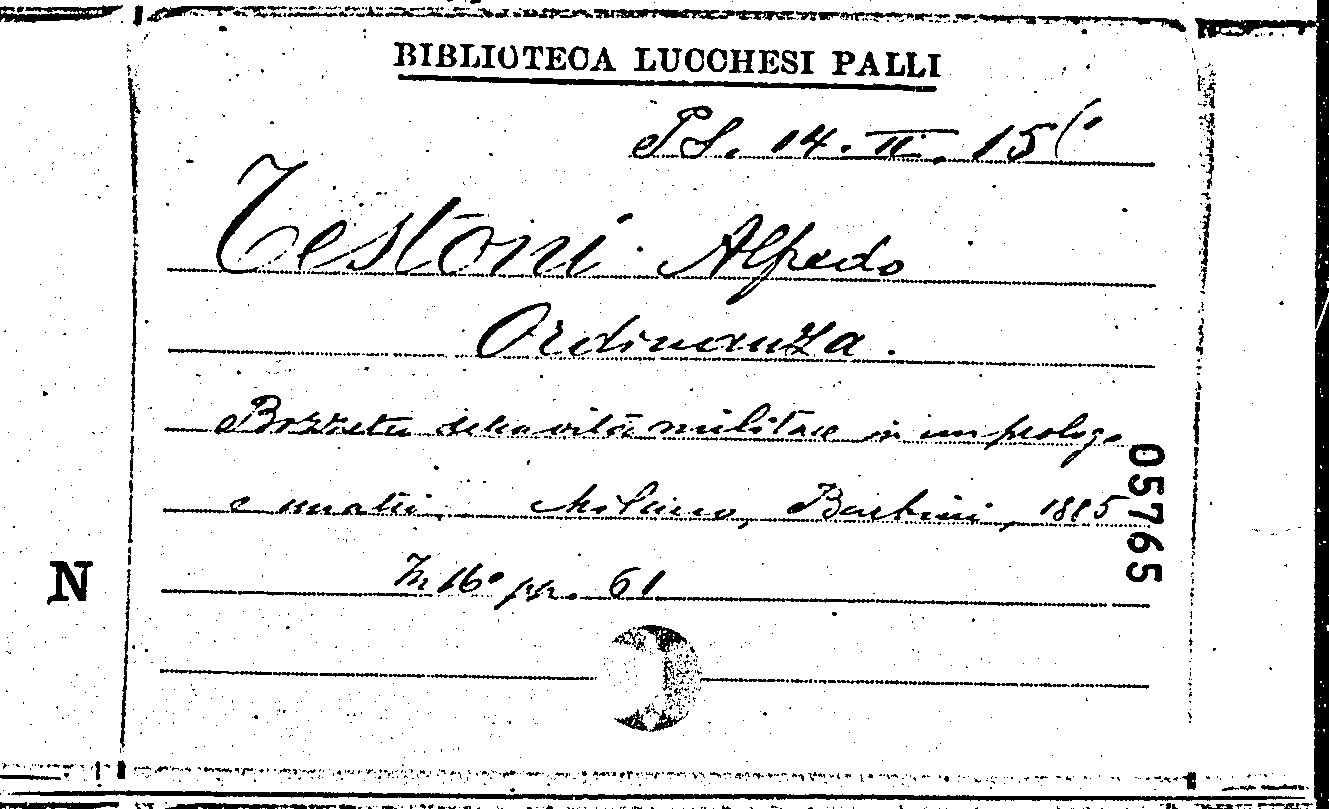 BIBLIOTECA LUCCHESI PALLI
P S. 14. II. 15
Testoni Alfredo
Ordinanza.
Bozzetto della vita militare in un prologo
e un atti. Milano, Barbini, 1885
In 16° pp. 61
05765
N